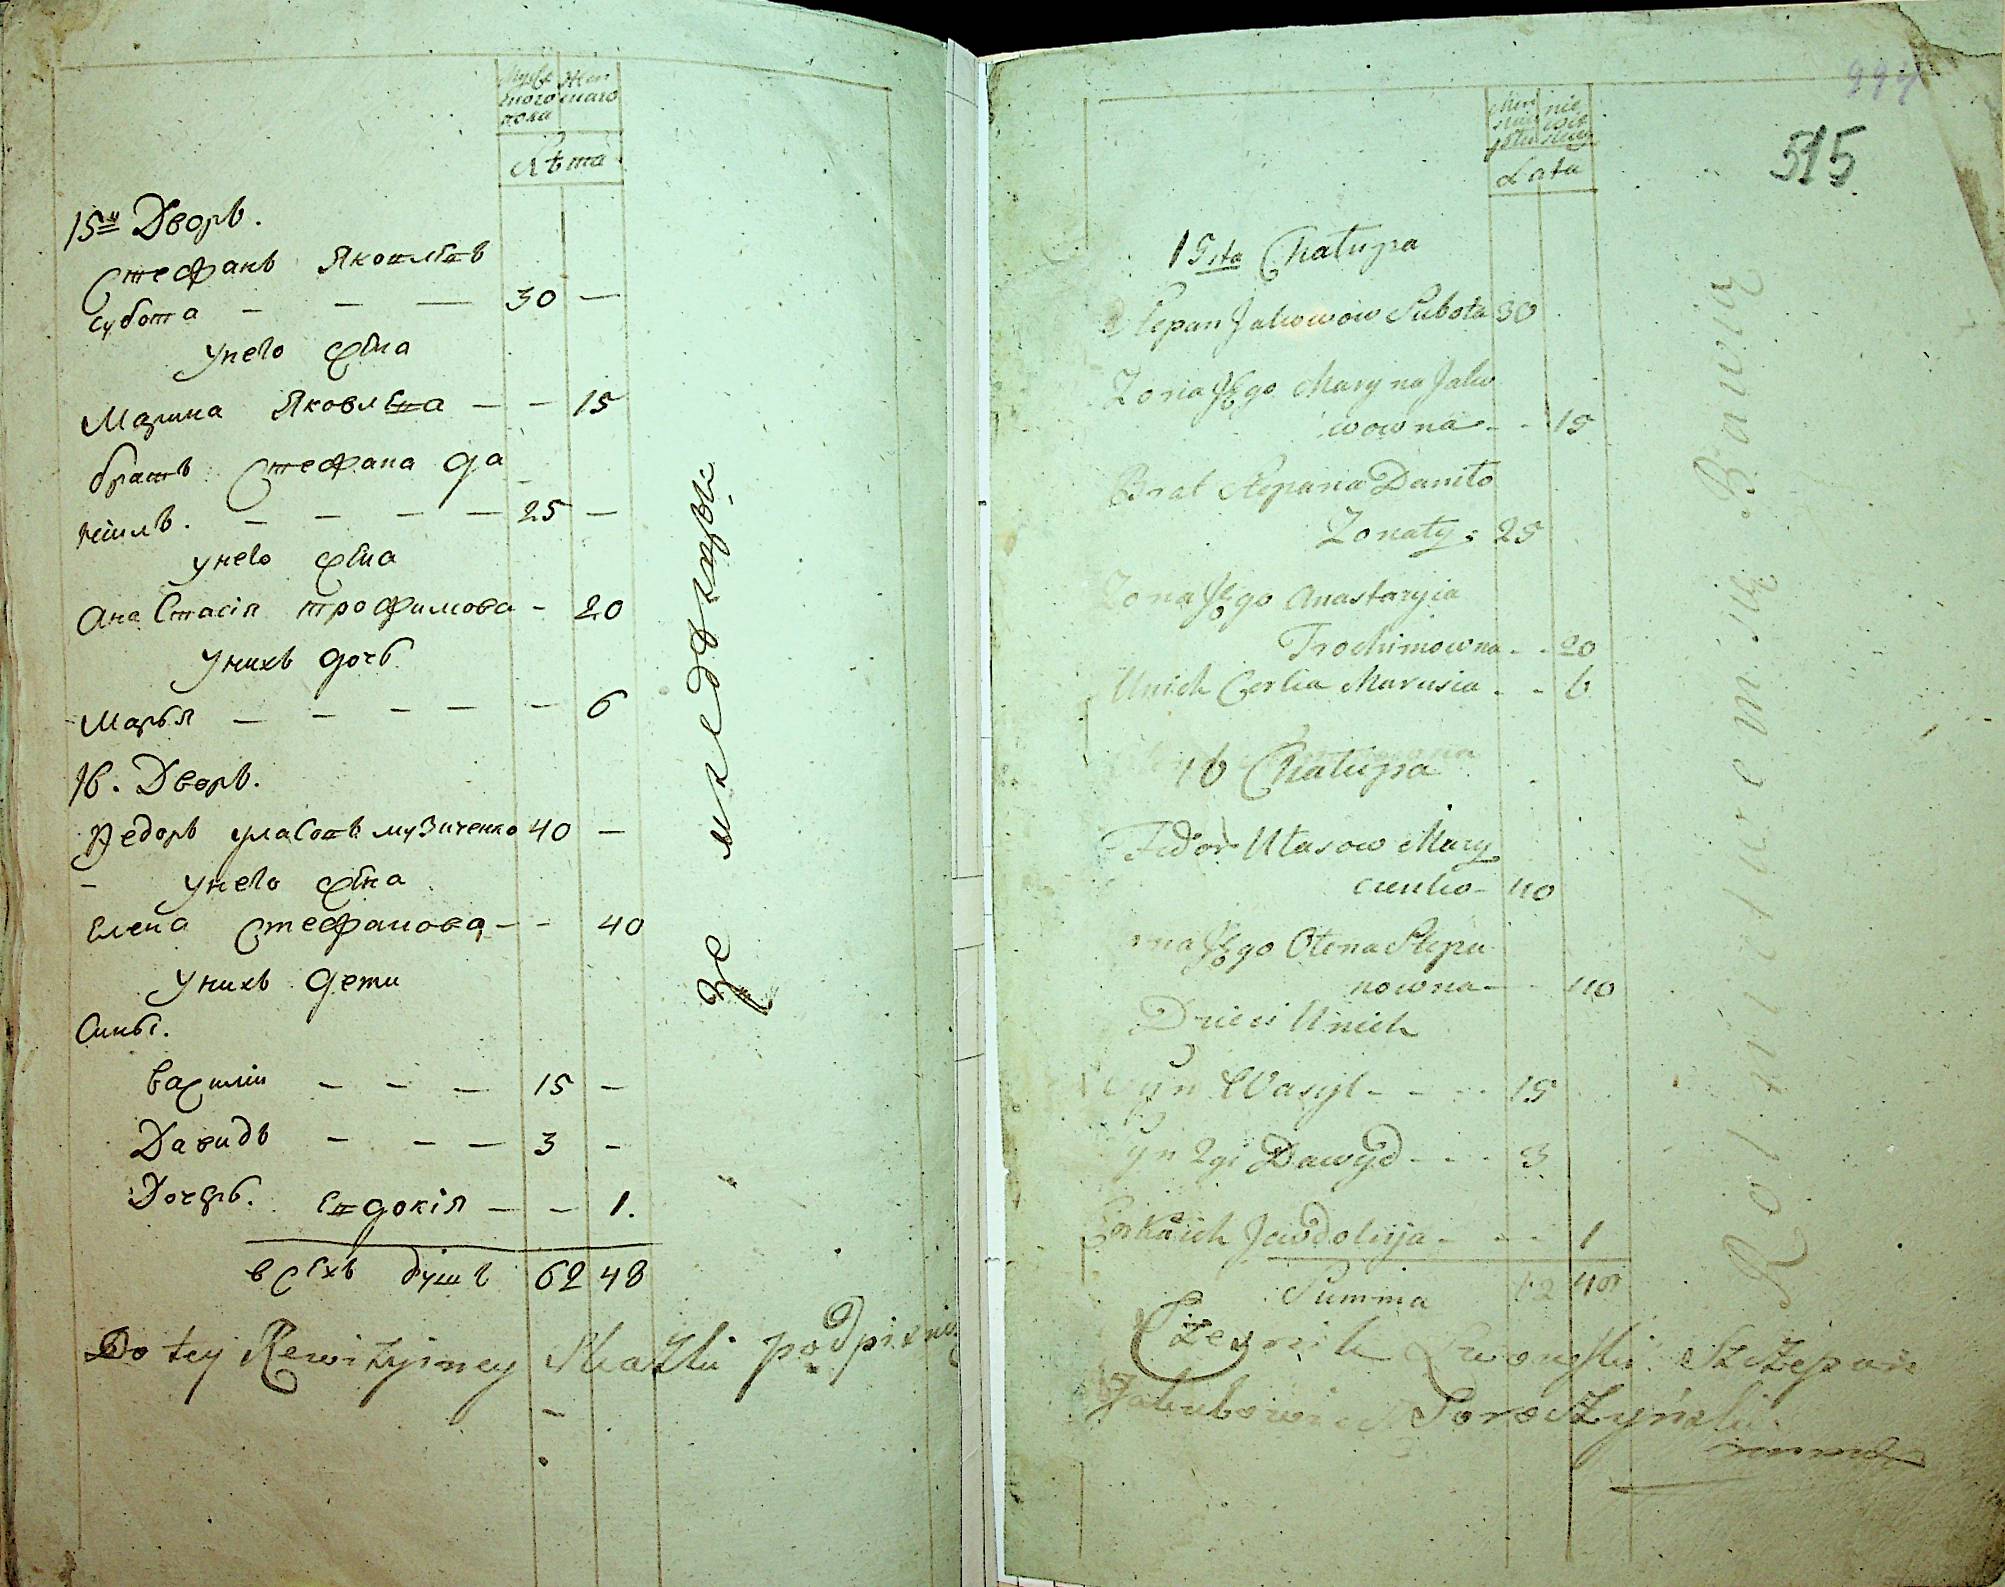 Мужеского пола Женскаго
Лѣта
15й Дворъ.
Стефанъ Яковлѣвъ
субота - - - 30 -
унего жена
Марина Яковлѣва - - 15
братъ Стефана да
нѣилъ. - - - - 25 -
унего жена
Ана Стасія трофимова - 20
унихъ дочь
Марья - - - - - 6
16. Дворъ.
Федоръ уласовъ музиченко 40 -
- унего жена
Елена Стефанова - - 40
унихъ дети
Сины.
Василіи - - - 15 -
Давидъ - - - 3 -
Дочерь. Евдокія - - 1.
всѣхъ душъ 62 48
Do tey Rewizyiney Skazki podpisuię
515
Lata
15sta Chałupa
Stepan Jakowow Subota 30
Zona Jego Maryna Jako
wowna - - 15
Brat Stepana Daniło
Zonaty: 25
Zona Jego Anastazyia
Trochimowna - - 20
Unich Corka Marusia - - 6
16 Chałupa
Fedor Ułasow Muzy
czenko - 40
Jego Ołena Stepa
nowna - - 40
Dzieci Unich
Syn Wasyl - - - - 15
Syn 2gi Dawyd - - - 3
Corka ich Jewdokija - - - - 1
Summa 62 48
Czesnik Szczepan
Jakubowicz